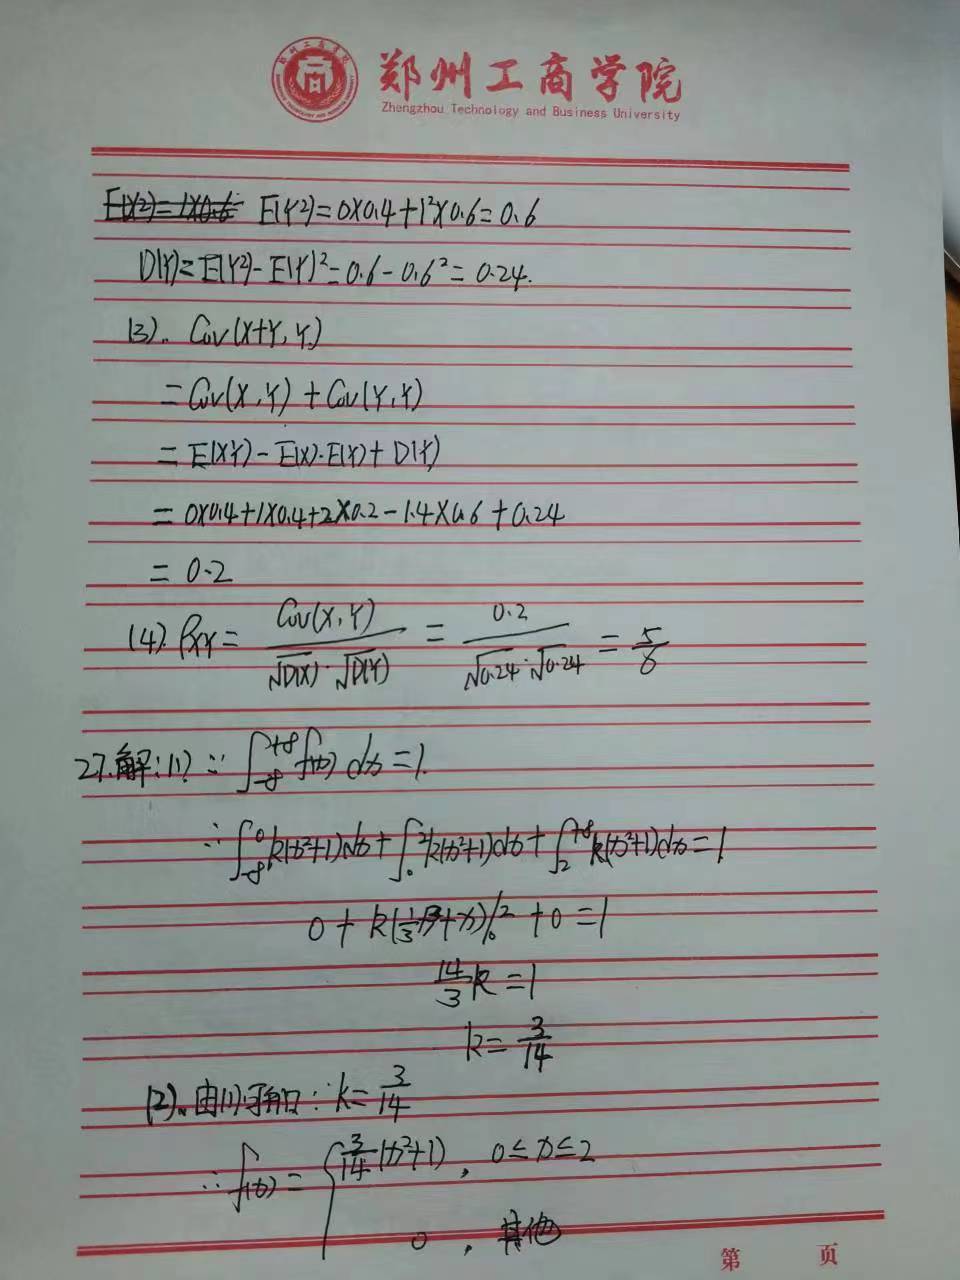 郑州工商学院
Zhengzhou Technology and Business University
E(Y2)=0×0.4+1²×0.6=0.6
D(Y)=E(Y²)-E(Y)²=0.6-0.6²=0.24.
(3). Cov(X+Y,Y)
=Cov(X,Y)+Cov(Y,Y)
=E(XY)-E(X)·E(Y)+D(Y)
=0×0.4+1×0.4+2×0.2-1.4×0.6+0.24
=0.2
(4). ρXY=Cov(X,Y)/√D(X)·√D(Y)=0.2/√0.24·√0.24=5/6
27.解:(1)∵∫_{-∞}^{+∞}f(x)dx=1.
∴∫_{-∞}^{0}k(x²+1)dx+∫_{0}^{2}k(x²+1)dx+∫_{2}^{+∞}k(x²+1)dx=1
0+k(1/3x³+x)|_{0}^{2}+0=1
14/3k=1
k=3/14
(2)、由(1)可知:k=3/14
∴f(x)={3/14(x²+1), 0≤x≤2
0,其他
第 页